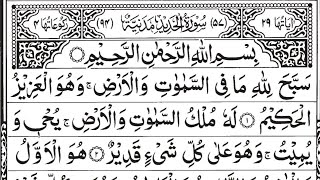 اٰیَاتُهَا ٢٩ (٥٧) سُوْرَةُ الْحَدِیْدِ مَدَنِیَّةٌ (٩٤) رُكُوْعَاتُهَا ٤
بِسْمِ اللّٰهِ الرَّحْمٰنِ الرَّحِیْمِ
سَبَّحَ لِلّٰهِ مَا فِی السَّمٰوٰتِ وَالْاَرْضِ ۚ وَهُوَ الْعَزِیْزُ
الْحَكِیْمُ ۝١ لَهٗ مُلْكُ السَّمٰوٰتِ وَالْاَرْضِ ۚ یُحْیٖ وَ
یُمِیْتُ ۚ وَهُوَ عَلٰی كُلِّ شَیْءٍ قَدِیْرٌ ۝٢ هُوَ الْاَوَّلُ